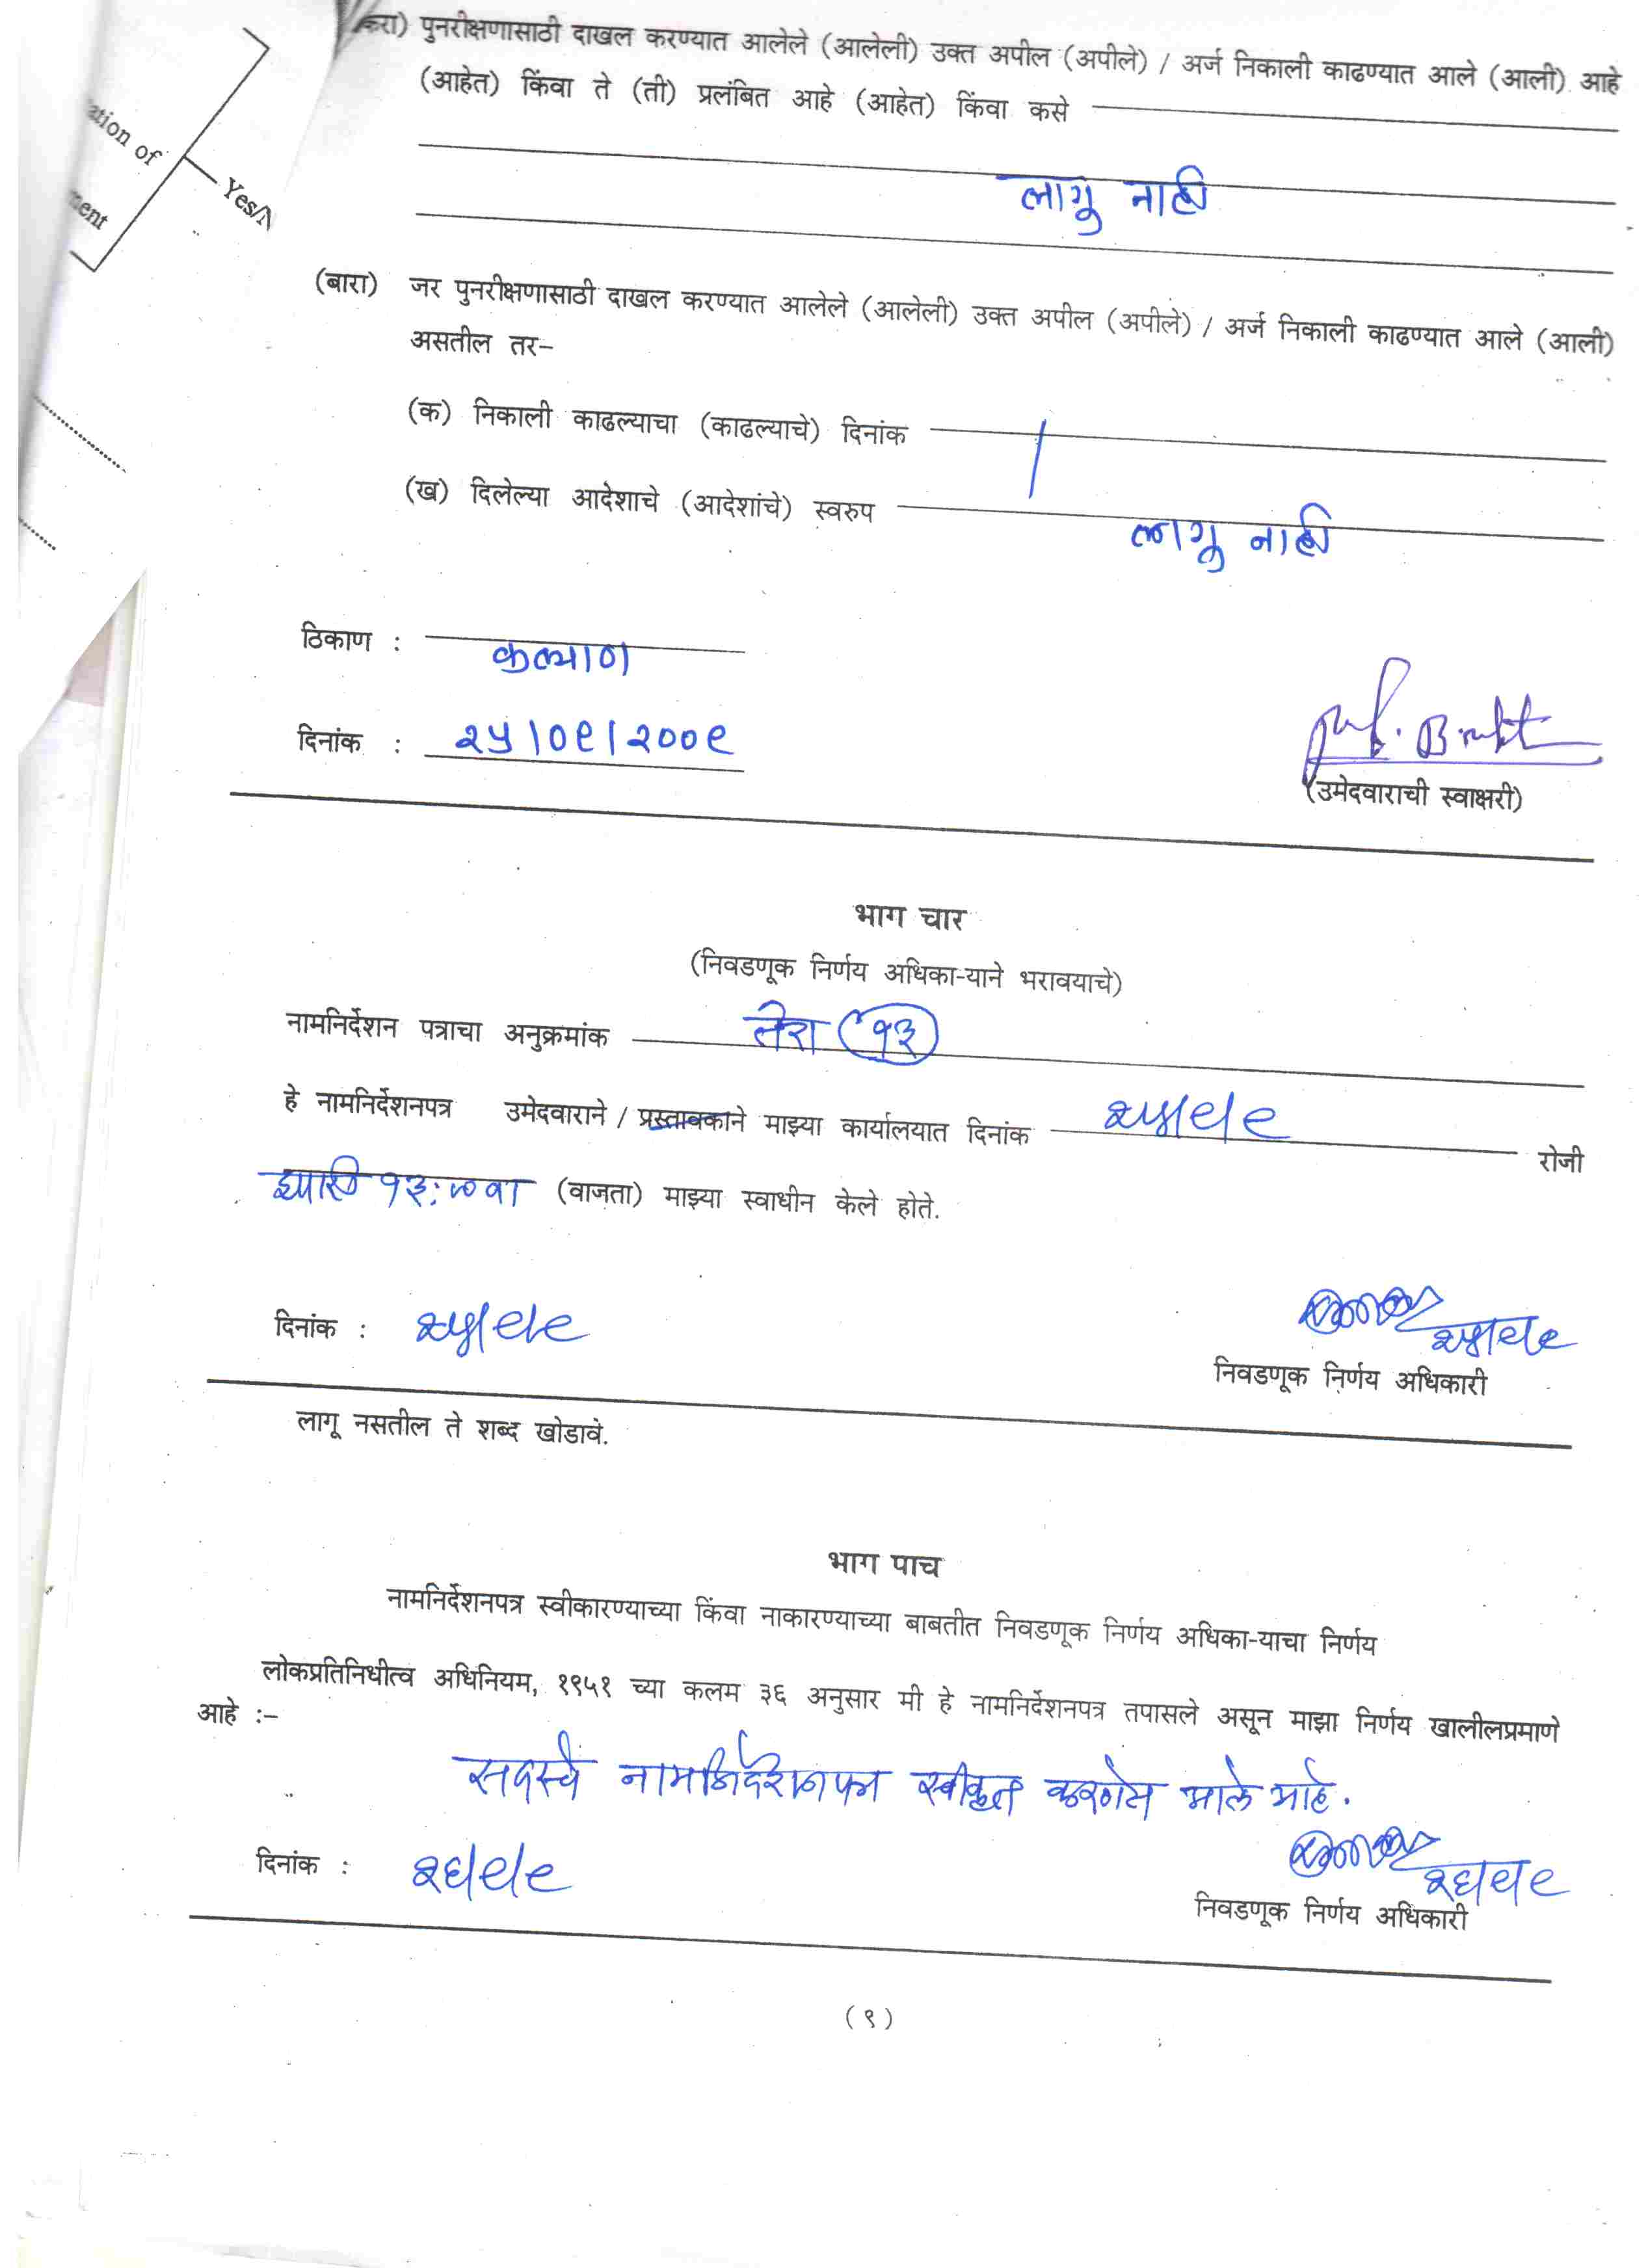 ation of
Yes/N
ment
पुनरीक्षणासाठी दाखल करण्यात आलेले (आलेली) उक्त अपील (अपीले) / अर्ज निकाली काढण्यात आले (आली) आहे
(आहेत) किंवा ते (ती) प्रलंबित आहे (आहेत) किंवा कसे
लागु नाही
(बारा) जर पुनरीक्षणासाठी दाखल करण्यात आलेले (आलेली) उक्त अपील (अपीले) / अर्ज निकाली काढण्यात आले (आली)
असतील तर-
(क) निकाली काढल्याचा (काढल्याचे) दिनांक
(ख) दिलेल्या आदेशाचे (आदेशांचे) स्वरुप
लागु नाही
ठिकाण : कल्याण
दिनांक : २५/०९/२००९
(उमेदवाराची स्वाक्षरी)
भाग चार
(निवडणूक निर्णय अधिका-याने भरावयाचे)
नामनिर्देशन पत्राचा अनुक्रमांक तेरा १३
हे नामनिर्देशनपत्र उमेदवाराने / प्रस्तावकाने माझ्या कार्यालयात दिनांक २५/९/९ रोजी
(वाजता) माझ्या स्वाधीन केले होते.
दिनांक : २५/९/९
२५/९/९
निवडणूक निर्णय अधिकारी
लागू नसतील ते शब्द खोडावे.
भाग पाच
नामनिर्देशनपत्र स्वीकारण्याच्या किंवा नाकारण्याच्या बाबतीत निवडणूक निर्णय अधिका-याचा निर्णय
लोकप्रतिनिधीत्व अधिनियम, १९५१ च्या कलम ३६ अनुसार मी हे नामनिर्देशनपत्र तपासले असून माझा निर्णय खालीलप्रमाणे
आहे :-
सदरचे नामनिर्देशनपत्र स्वीकृत करणेत आले आहे.
दिनांक : २६/९/९
२६/९/९
निवडणूक निर्णय अधिकारी
(९)